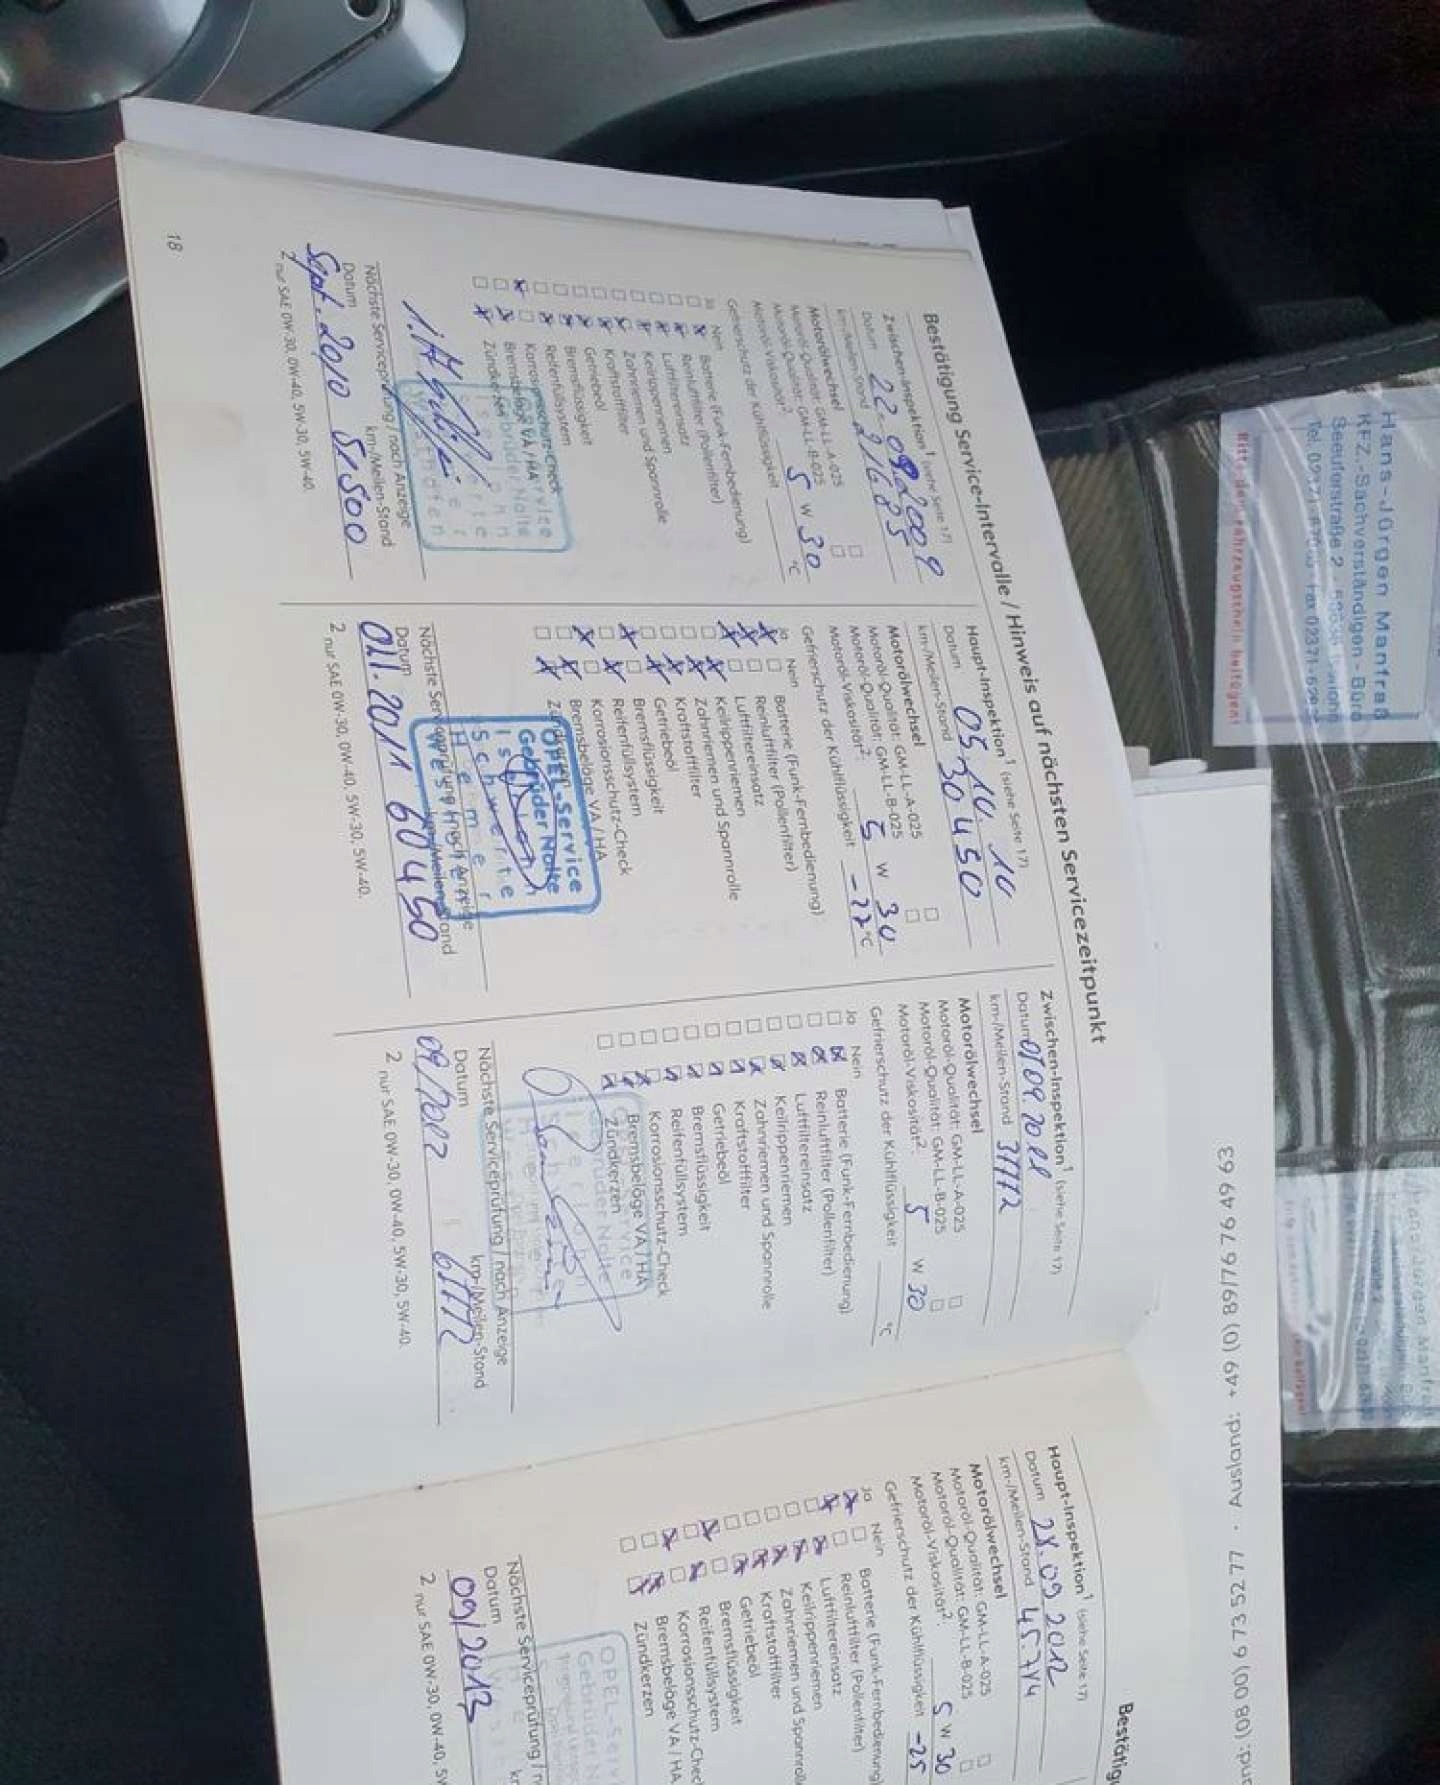 Bestätigung Service-Intervalle / Hinweis auf nächsten Servicezeitpunkt
Zwischen-Inspektion¹ (siehe Seite 17)
Datum 22.09.2009
km-/Meilen-Stand 21685
Motorölwechsel
Motoröl-Qualität: GM-LL-A-025
Motoröl-Qualität: GM-LL-B-025
Motoröl-Viskosität²: 5 W 30
Gefrierschutz der Kühlflüssigkeit °C
Ja Nein
Batterie (Funk-Fernbedienung)
Reinluftfilter (Pollenfilter)
Luftfiltereinsatz
Keilrippenriemen
Zahnriemen und Spannrolle
Kraftstofffilter
Getriebeöl
Bremsflüssigkeit
Reifenfüllsystem
Korrosionsschutz-Check
Bremsbeläge VA / HA
Zündkerzen
Nächste Serviceprüfung / nach Anzeige
Datum km-/Meilen-Stand
Sept. 2010 51500
2 nur SAE 0W-30, 0W-40, 5W-30, 5W-40.
18
Haupt-Inspektion¹ (siehe Seite 17)
Datum 05.10.10
km-/Meilen-Stand 30450
Motorölwechsel
Motoröl-Qualität: GM-LL-A-025
Motoröl-Qualität: GM-LL-B-025
Motoröl-Viskosität²: 5 W 30
Gefrierschutz der Kühlflüssigkeit -27 °C
Ja Nein
Batterie (Funk-Fernbedienung)
Reinluftfilter (Pollenfilter)
Luftfiltereinsatz
Keilrippenriemen
Zahnriemen und Spannrolle
Kraftstofffilter
Getriebeöl
Bremsflüssigkeit
Reifenfüllsystem
Korrosionsschutz-Check
Bremsbeläge VA / HA
OPEL-Service
Gebrüder Nolte
Iserlohn
Schwerte
Hemer
Westhofen
Nächste Serviceprüfung / nach Anzeige
Datum km-/Meilen-Stand
Okt. 2011 60450
2 nur SAE 0W-30, 0W-40, 5W-30, 5W-40.
Zwischen-Inspektion¹ (siehe Seite 17)
Datum 07.09.2011
km-/Meilen-Stand 37772
Motorölwechsel
Motoröl-Qualität: GM-LL-A-025
Motoröl-Qualität: GM-LL-B-025
Motoröl-Viskosität²: 5 W 30
Gefrierschutz der Kühlflüssigkeit °C
Ja Nein
Batterie (Funk-Fernbedienung)
Reinluftfilter (Pollenfilter)
Luftfiltereinsatz
Keilrippenriemen
Zahnriemen und Spannrolle
Kraftstofffilter
Getriebeöl
Bremsflüssigkeit
Reifenfüllsystem
Korrosionsschutz-Check
Bremsbeläge VA / HA
Zündkerzen
Nächste Serviceprüfung / nach Anzeige
Datum km-/Meilen-Stand
09/2012 67772
2 nur SAE 0W-30, 0W-40, 5W-30, 5W-40.
Haupt-Inspektion¹ (siehe Seite 17)
Datum 28.09.2012
km-/Meilen-Stand 45.714
Motorölwechsel
Motoröl-Qualität: GM-LL-A-025
Motoröl-Qualität: GM-LL-B-025
Motoröl-Viskosität²: 5 W 30
Gefrierschutz der Kühlflüssigkeit -25
Ja Nein
Batterie (Funk-Fernbedienung)
Reinluftfilter (Pollenfilter)
Luftfiltereinsatz
Keilrippenriemen
Zahnriemen und Spannrolle
Kraftstofffilter
Getriebeöl
Bremsflüssigkeit
Reifenfüllsystem
Korrosionsschutz-Chec
Bremsbeläge VA / HA
Zündkerzen
OPEL-Serv
Gebrüder N
Nächste Serviceprüfung / n
Datum
09/2013
2 nur SAE 0W-30, 0W-40, 5W
Bestätigu
nd: (08 00) 6 73 52 77 · Ausland: + 49 (0) 89/76 76 49 63
Hans-Jürgen Manfraß
KFZ.-Sachverständigen-Büro
Seeuferstraße 2
Bitte dem Fahrzeugschein beifügen!